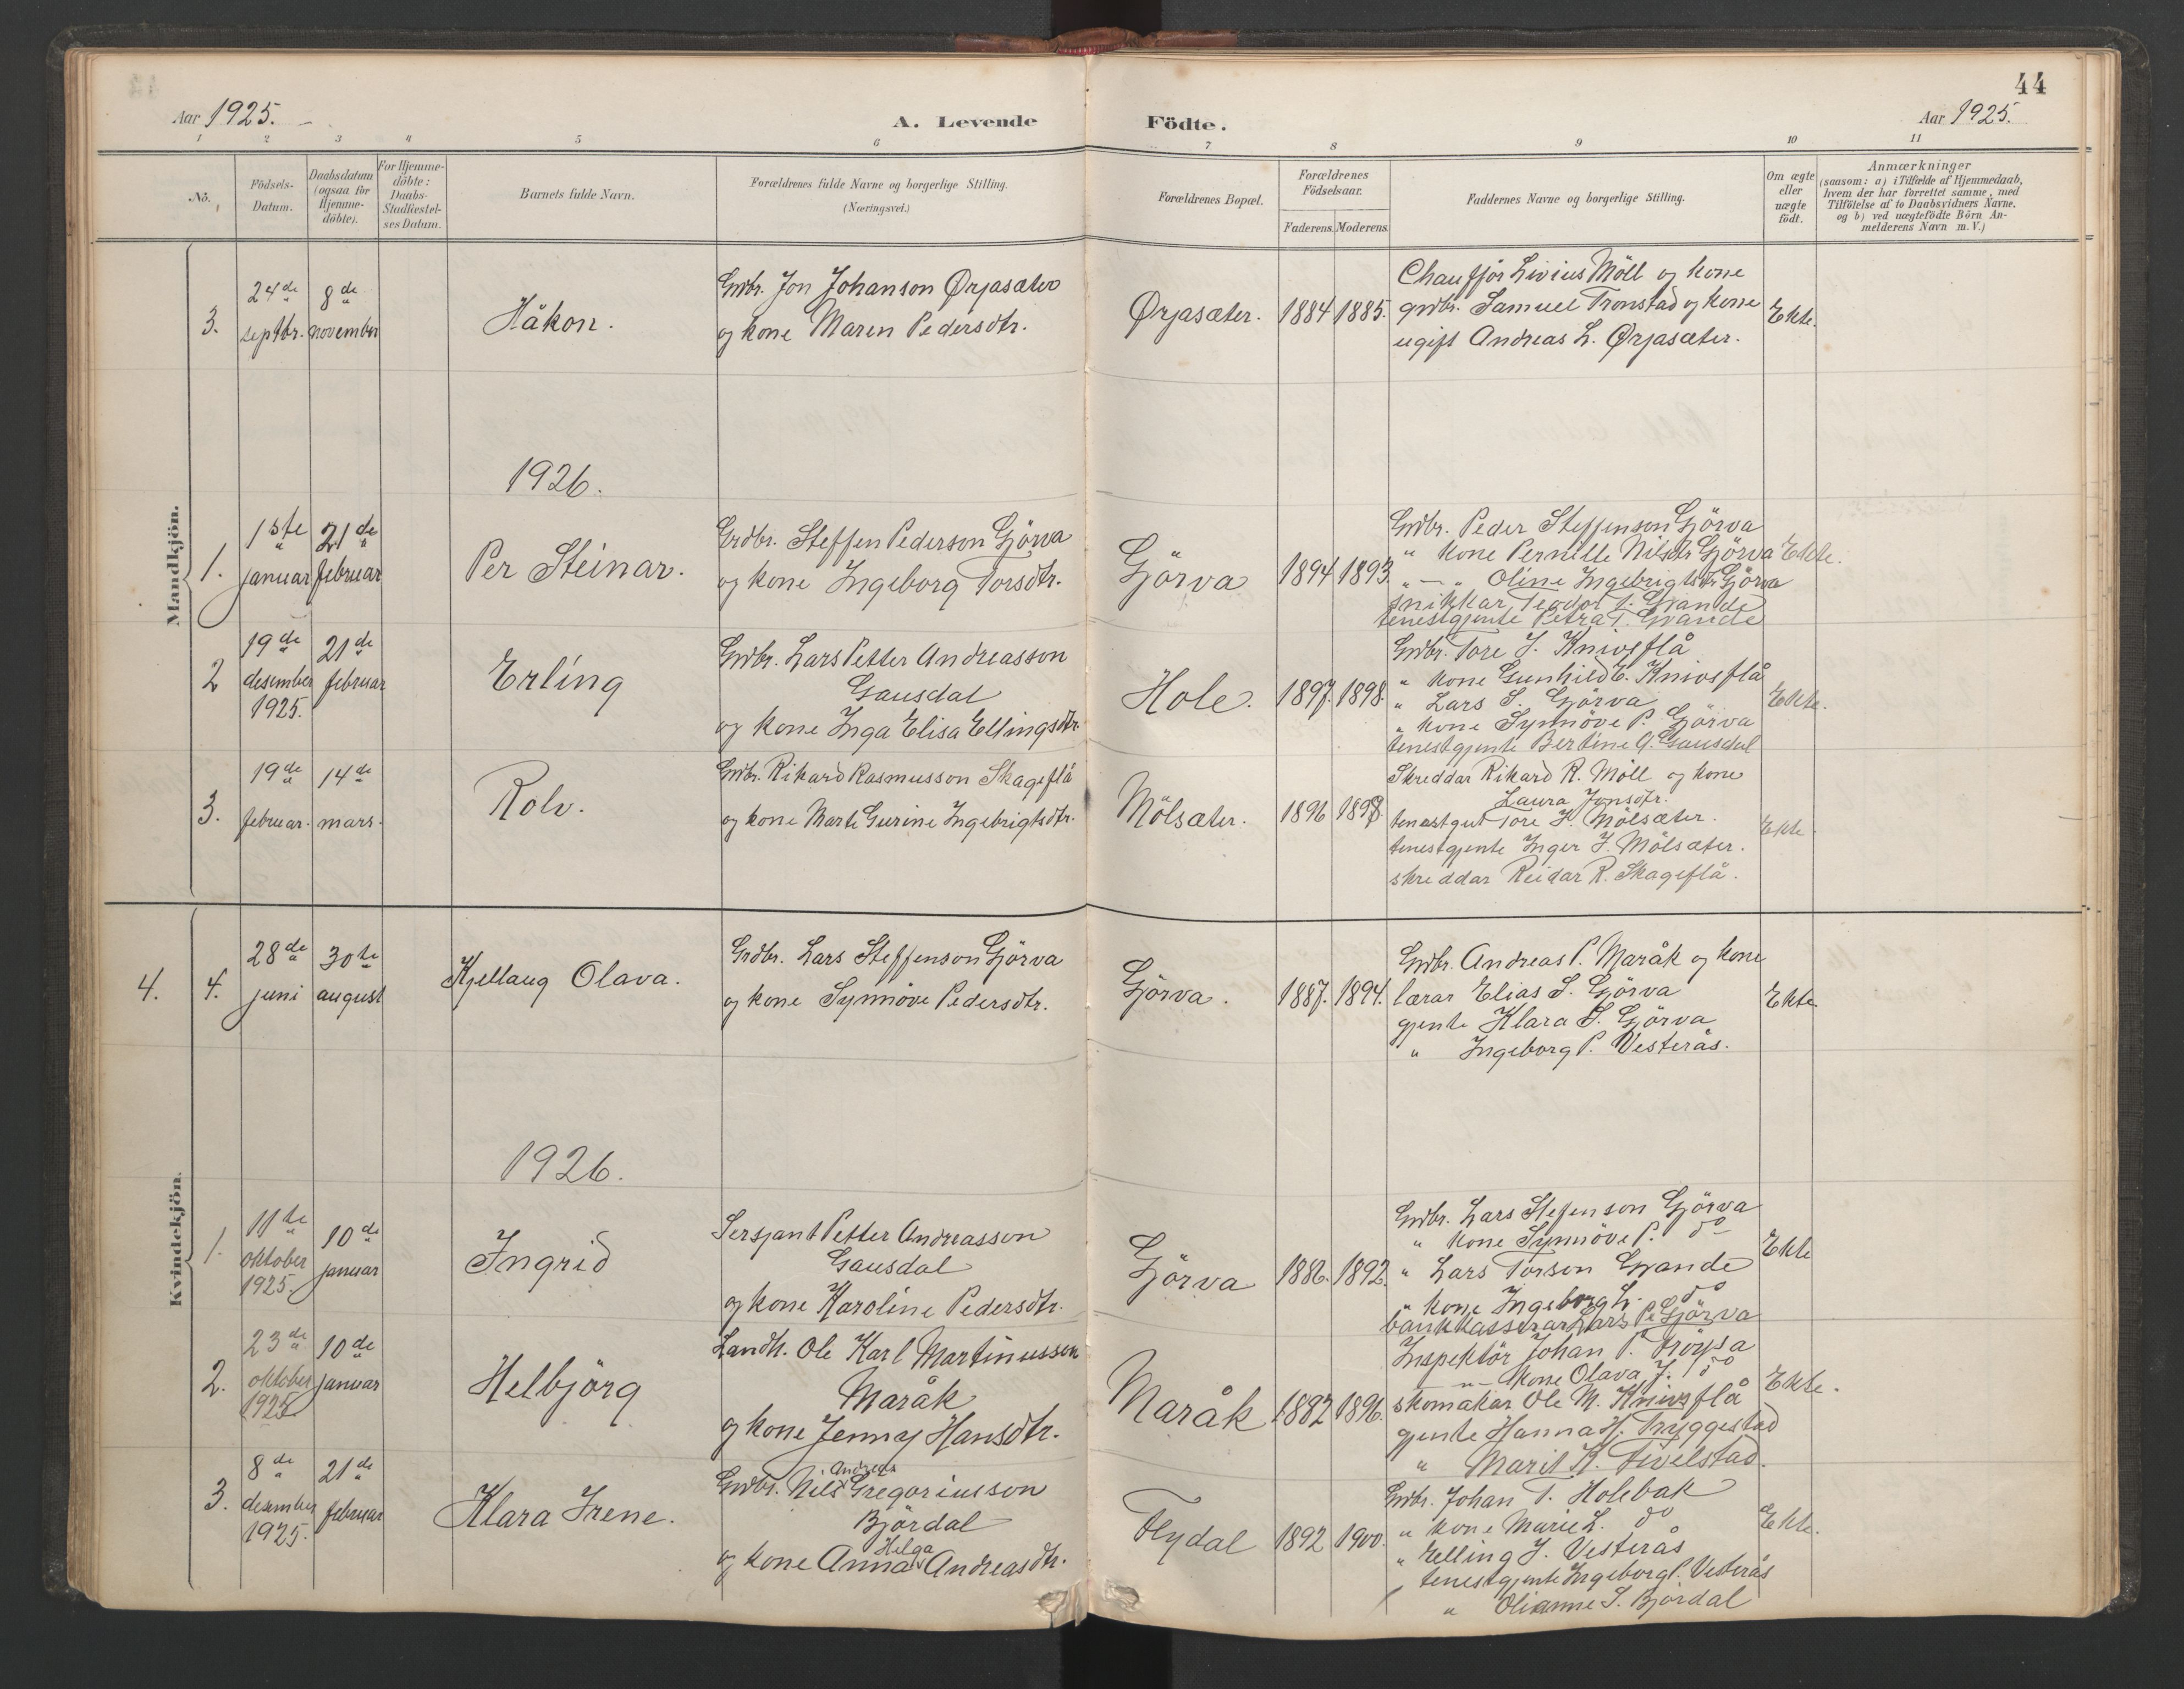 44
Aar 1925.
A. Levende Födte.
Aar 1925.
1 2 3 4 5 6 7 8 9 10 11
No.
Födsels-Datum.
Daabsdatum (ogsaa for Hjemme-döbte).
For Hjemme-döbte: Daabs-Stadfæstel-ses Datum.
Barnets fulde Navn.
Forældrenes fulde Navne og borgerlige Stilling.
(Næringsvei.)
Forældrenes Bopæl.
Forældrenes Födselsaar.
Faderens. Moderens.
Faddernes Navne og borgerlige Stilling.
Om ægte eller uægte födt.
Anmærkninger
(saasom: a) i Tilfælde af Hjemmedaab,
hvem der har forrettet samme, med
Tilföielse af to Daabsvidners Navne.
og b) ved uægtefödte Börn An-
melderens Navn m. V.)
Mandkjön.
3.
24de septbr.
8de november
Håkon.
Grdbr. Jon Johanson Ørjasæter
og kone Maren Pedersdtr.
Ørjasæter.
1884 1885.
Chauffjör Livius Möll og kone
grdbr. Samuel Tronstad og kone
ugift Andreas L. Ørjasæter.
Ekte.
1926.
1.
1ste januar
21de februar
Per Steinar.
Grdbr. Steffen Pederson Gjörva
og kone Ingeborg Torsdtr.
Gjörva
1894 1893.
Grdbr. Peder Steffenson Gjörva
" kone Pernille Nilsdtr Gjörva
" — " Oline Ingebrigtsdtr. Gjörva
snikkar Teodor T. Grande
tenestgjente Petra T. Grande
Ekte.
2
19de desember 1925.
21de februar
Erling
Grdbr. Lars Petter Andreasson
Gausdal
og kone Inga Elisa Ellingsdtr.
Hole.
1897. 1898.
Grdbr. Tore J. Knivsflå
" kone Gunhild E. Knivsflå
" Lars S. Gjörva
" kone Synnöve P. Gjörva
tenestgjente Bertine A. Gausdal
Ekte.
3.
19de februar.
14de mars.
Rolv.
Grdbr. Rikard Rasmusson Skageflå
og kone Marte Gurine Ingebrigtsdtr.
Mölsæter.
1896 1898.
Skreddar Rikard R. Möll og kone
Laura Jonsdtr.
tenestgut Tore K. Mölsæter.
tenestgjente Inger J. Mölsæter.
skreddar Reidar R. Skageflå.
Ekte.
Kvindekjön.
4.
4.
28de juni
30te august
Kjellaug Olava.
Grdbr. Lars Steffenson Gjörva
og kone Synnöve Pedersdtr.
Gjörva.
1887. 1894.
Grdbr. Andreas P. Maråk og kone
lærar Elias S. Gjörva
gjente Klara S. Gjörva
" Ingeborg P. Vesterås.
Ekte.
1926.
1.
11te oktober 1925.
10de januar
Ingrid
Sersjant Petter Andreasson
Gausdal
og kone Karoline Pedersdtr.
Gjörva
1886. 1892.
Grdbr. Lars Stefenson Gjörva
" kone Synnöve P. do
" Lars Torson Grande
" kone Ingeborg L. do
bankkasserar Lars P. Gjörva
Ekte
2.
23de oktober 1925
10de januar
Helbjörg
Landh. Ole Karl Martinusson
Maråk
og kone Jenny Hansdtr.
Maråk
1882 1896.
Inspektör Johan P. Fröysa
— " — kone Olava J. do
skomakar Ole M. Knivsflå
gjente Hanna H. Tryggestad
" Marit K. Fivelstad.
Ekte.
3.
8de desember 1925.
21de februar
Klara Irene.
Grdbr. Nils Andreas Gregoriusson
Björdal
og kone Anna Helga Andreasdtr.
Flydal
1892 1900.
Grdbr. Johan T. Holebak
" kone Marie L. do
" Elling J. Vesterås
tenestgjente Ingeborg P. Vesterås
" Olianne S. Björdal
Ekte.